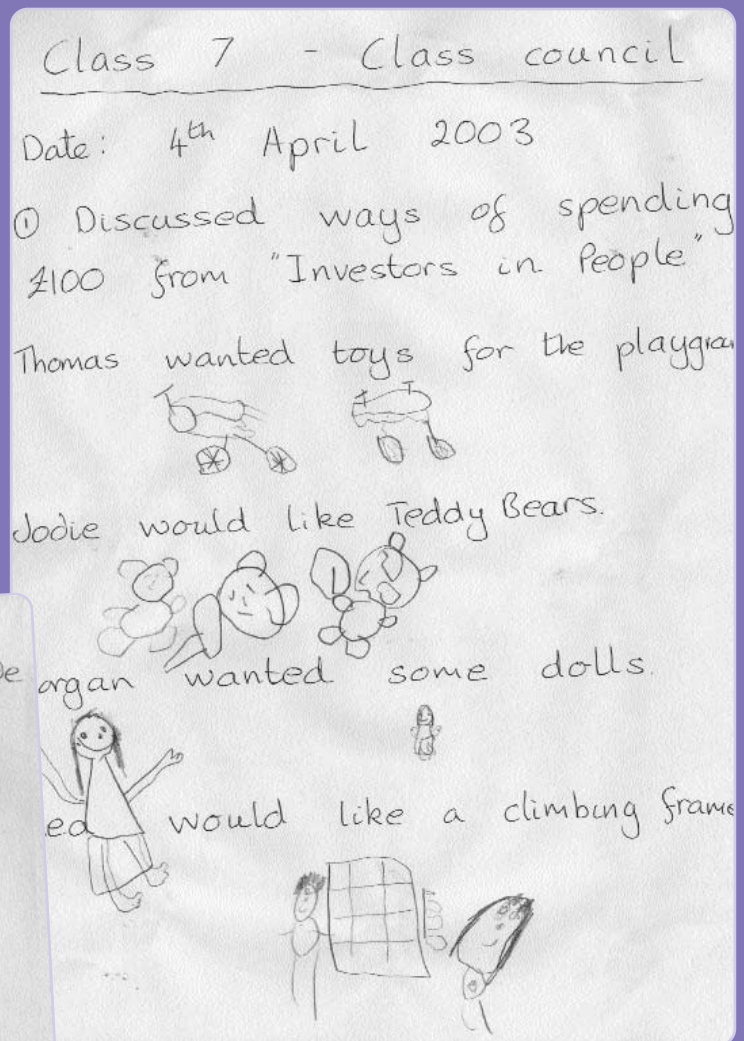 Class 7 - Class council
Date: 4th April 2003
① Discussed ways of spending
£100 from "Investors in People"
Thomas wanted toys for the playgrou
Jodie would like Teddy Bears.
organ wanted some dolls.
would like a climbing frame